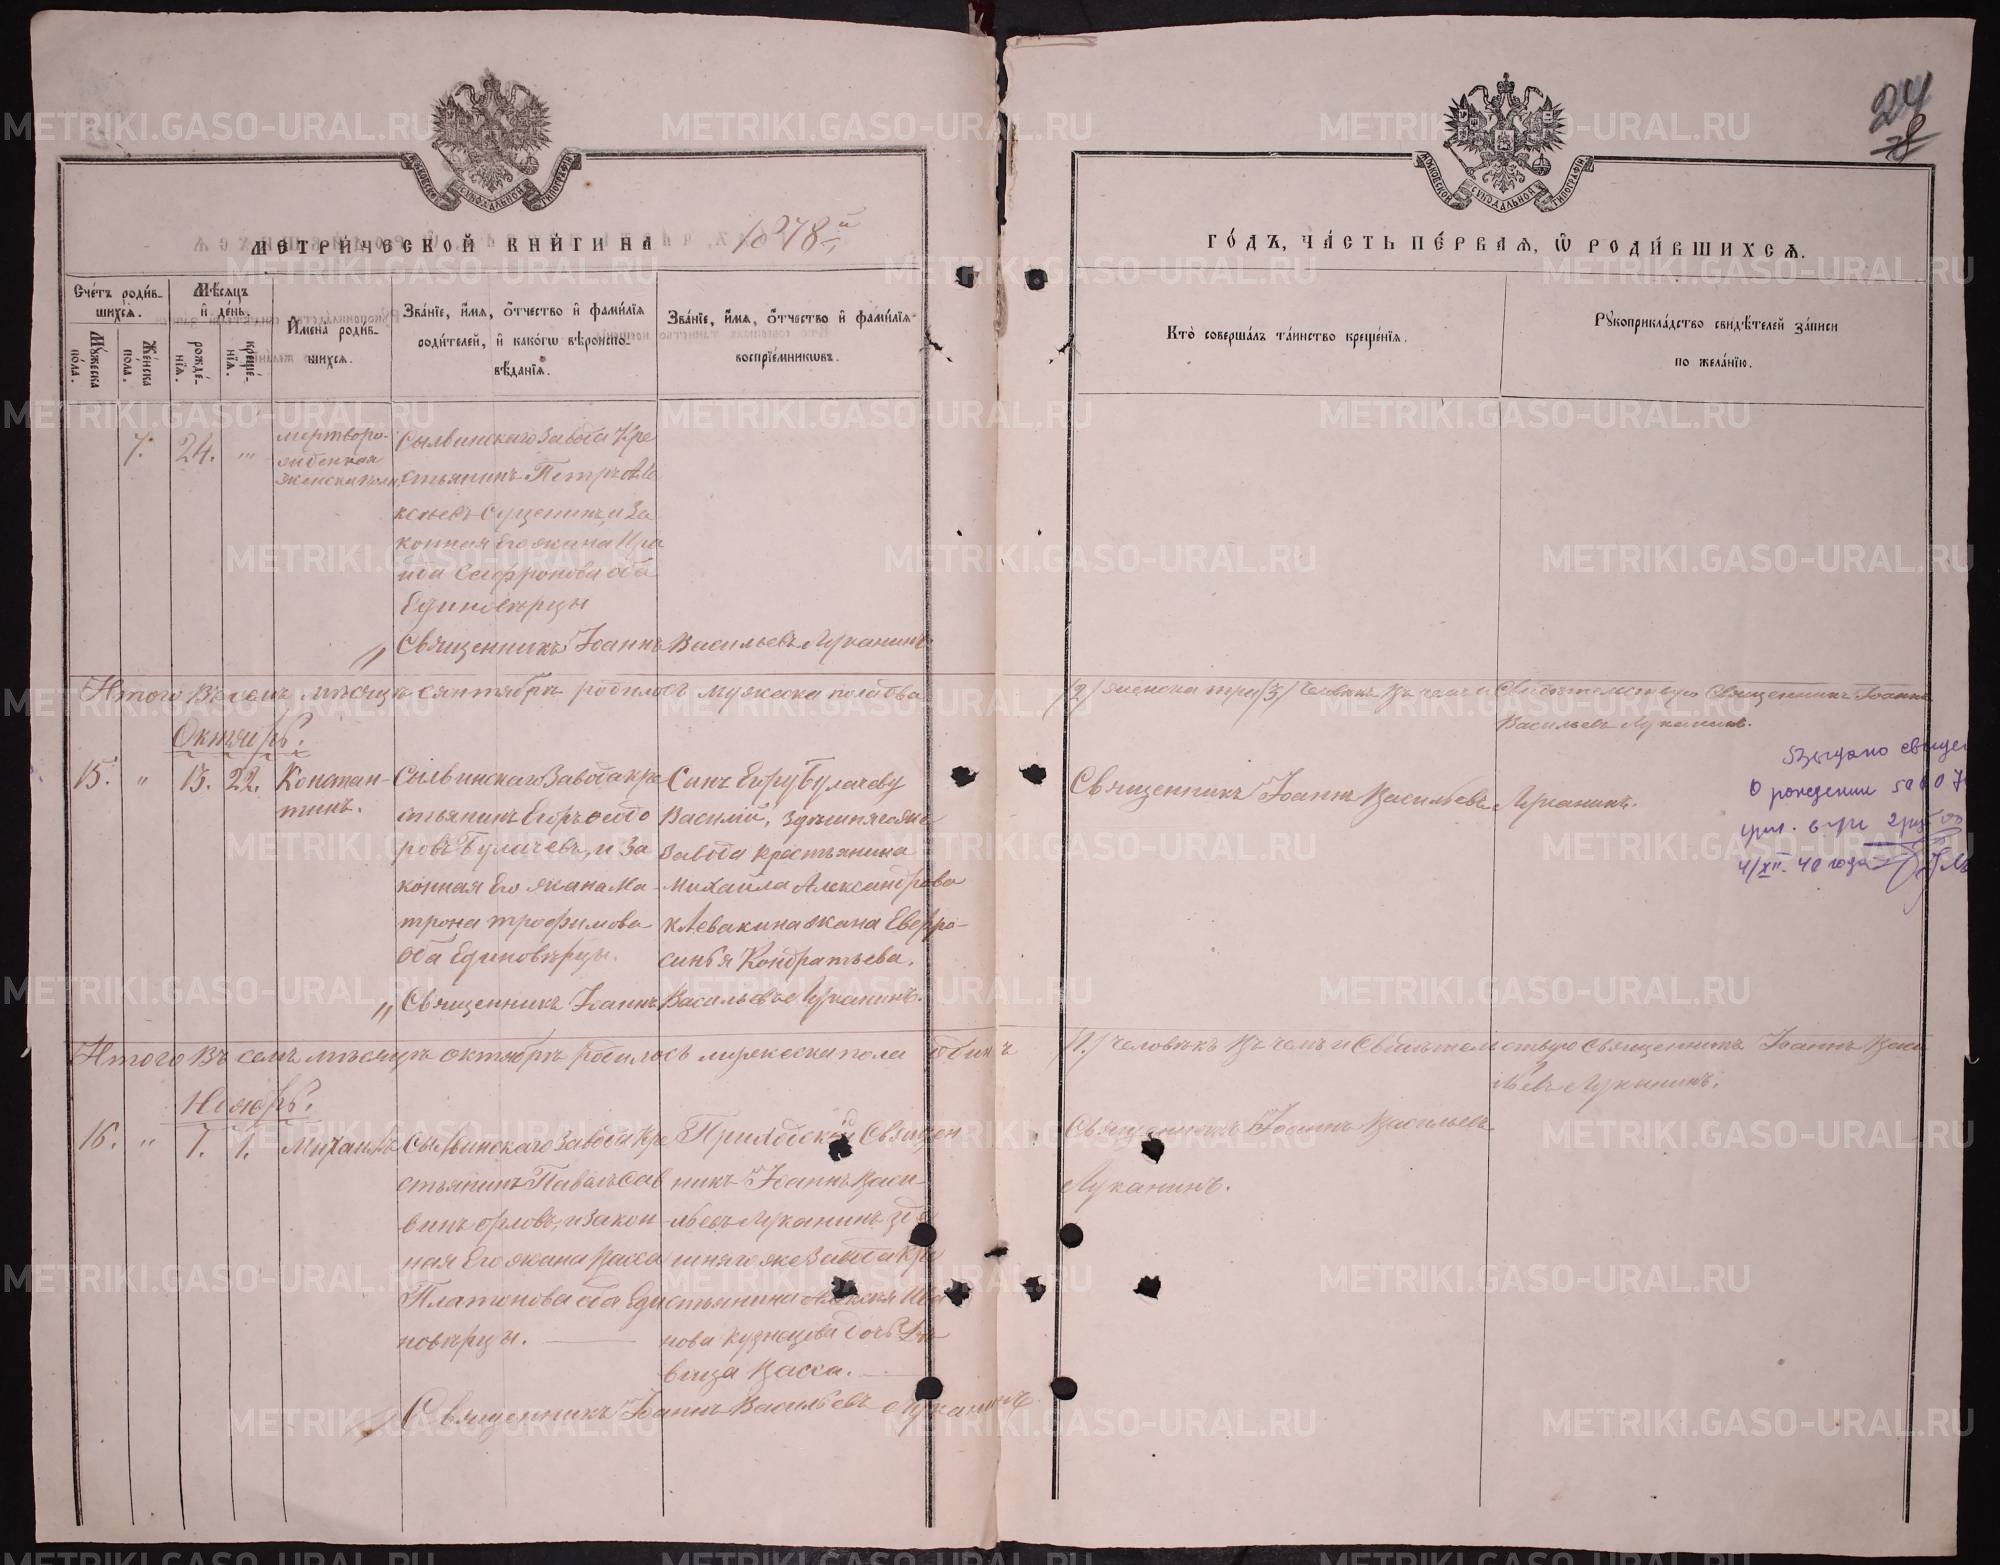 24
78
МЕТРИ́ЧЕСКОЙ КНИ́ГИ НА 1878й
ГО́ДЪ, ЧА́СТЬ ПЕ́РВАЯ, Ѽ РОДИ́ВШИХСЯ.
Сче́тъ роди́вшихсѧ.
Мꙋ́жеска по́ла.
Же́нска по́ла.
Мѣ́сяцъ и҆ де́нь.
рожде́нїѧ.
креще́нїѧ.
И҆мена̀ роди́вшихсѧ.
Зва́нїе, и҆́мѧ, ѻ҆́тчество и҆ фами́лїѧ
роди́телей, и҆ како́гѡ вѣроиспо-
вѣ́данїѧ.
Зва́нїе, и҆́мѧ, ѻ҆́тчество и҆ фами́лїѧ
воспрїе́мникѡвъ.
Кто̀ соверша́лъ та́инство креще́нїѧ.
Рꙋкоприкла́дство свидѣ́телей за́писи
по жела́нїю.
7. 24. "
мертворо-
жденная
женска пола
Сылвинскаго завода Кре
стьянинъ Петръ Але
ксѣевъ Сущенинъ, и За
конная Его жена Ира
ида Сафронова оба
Единовѣрцы
Священникъ Іоаннъ Васильевъ Луканинъ
Итого въ семъ мѣсяцѣ сентябрѣ родилось мужеска пола два
/2/ женска три /3/ человѣкъ въ чемъ и Свидѣтельствую Священникъ Іоаннъ
Васильевъ Луканинъ.
Октябрь.
15. " 15. 22.
Констан-
тинъ.
Сылвинскаго Завода кре
стьянинъ Егоръ Ѳедо
ровъ Булачевъ, и За
конная Его жена Ма-
трона трофимова
Оба Единовѣрцы.
Сынъ Егору Булачову
Василий, здѣшнягоже
завода крестьянина
Михайла Александрова
Клевакина жена Евфро-
синья Кондратьева.
Священникъ Іоаннъ Васильевъ Луканинъ.
Выдано свидет
о рождении
4/XII-40 года
Священникъ Іоаннъ Васильевъ Луканинъ.
Итого въ семъ мѣсяцѣ октябрѣ родилось мужеска пола одинъ
/1./ человѣкъ въ чемъ и Свидѣтельствую Священникъ Іоаннъ Васи
льевъ Луканинъ.
Ноябрь.
16. " 7. 1.
Михаилъ
Сылвинскаго Завода Кре
стьянинъ Павелъ Сав
винъ орловъ, и закон
ная Его жена Васса
Платонова оба Еди
новѣрцы.
Приходской Священ
никъ Іоаннъ Васи-
льевъ Луканинъ зѣ
шняго же Завода Кре
стьянина Алексѣя Ива
нова Кузнецова дочь Дѣ
вица Васса.
Священникъ Іоаннъ Васильевъ
Луканинъ.
Священникъ Іоаннъ Васильевъ Луканинъ
METRIKI.GASO-URAL.RU